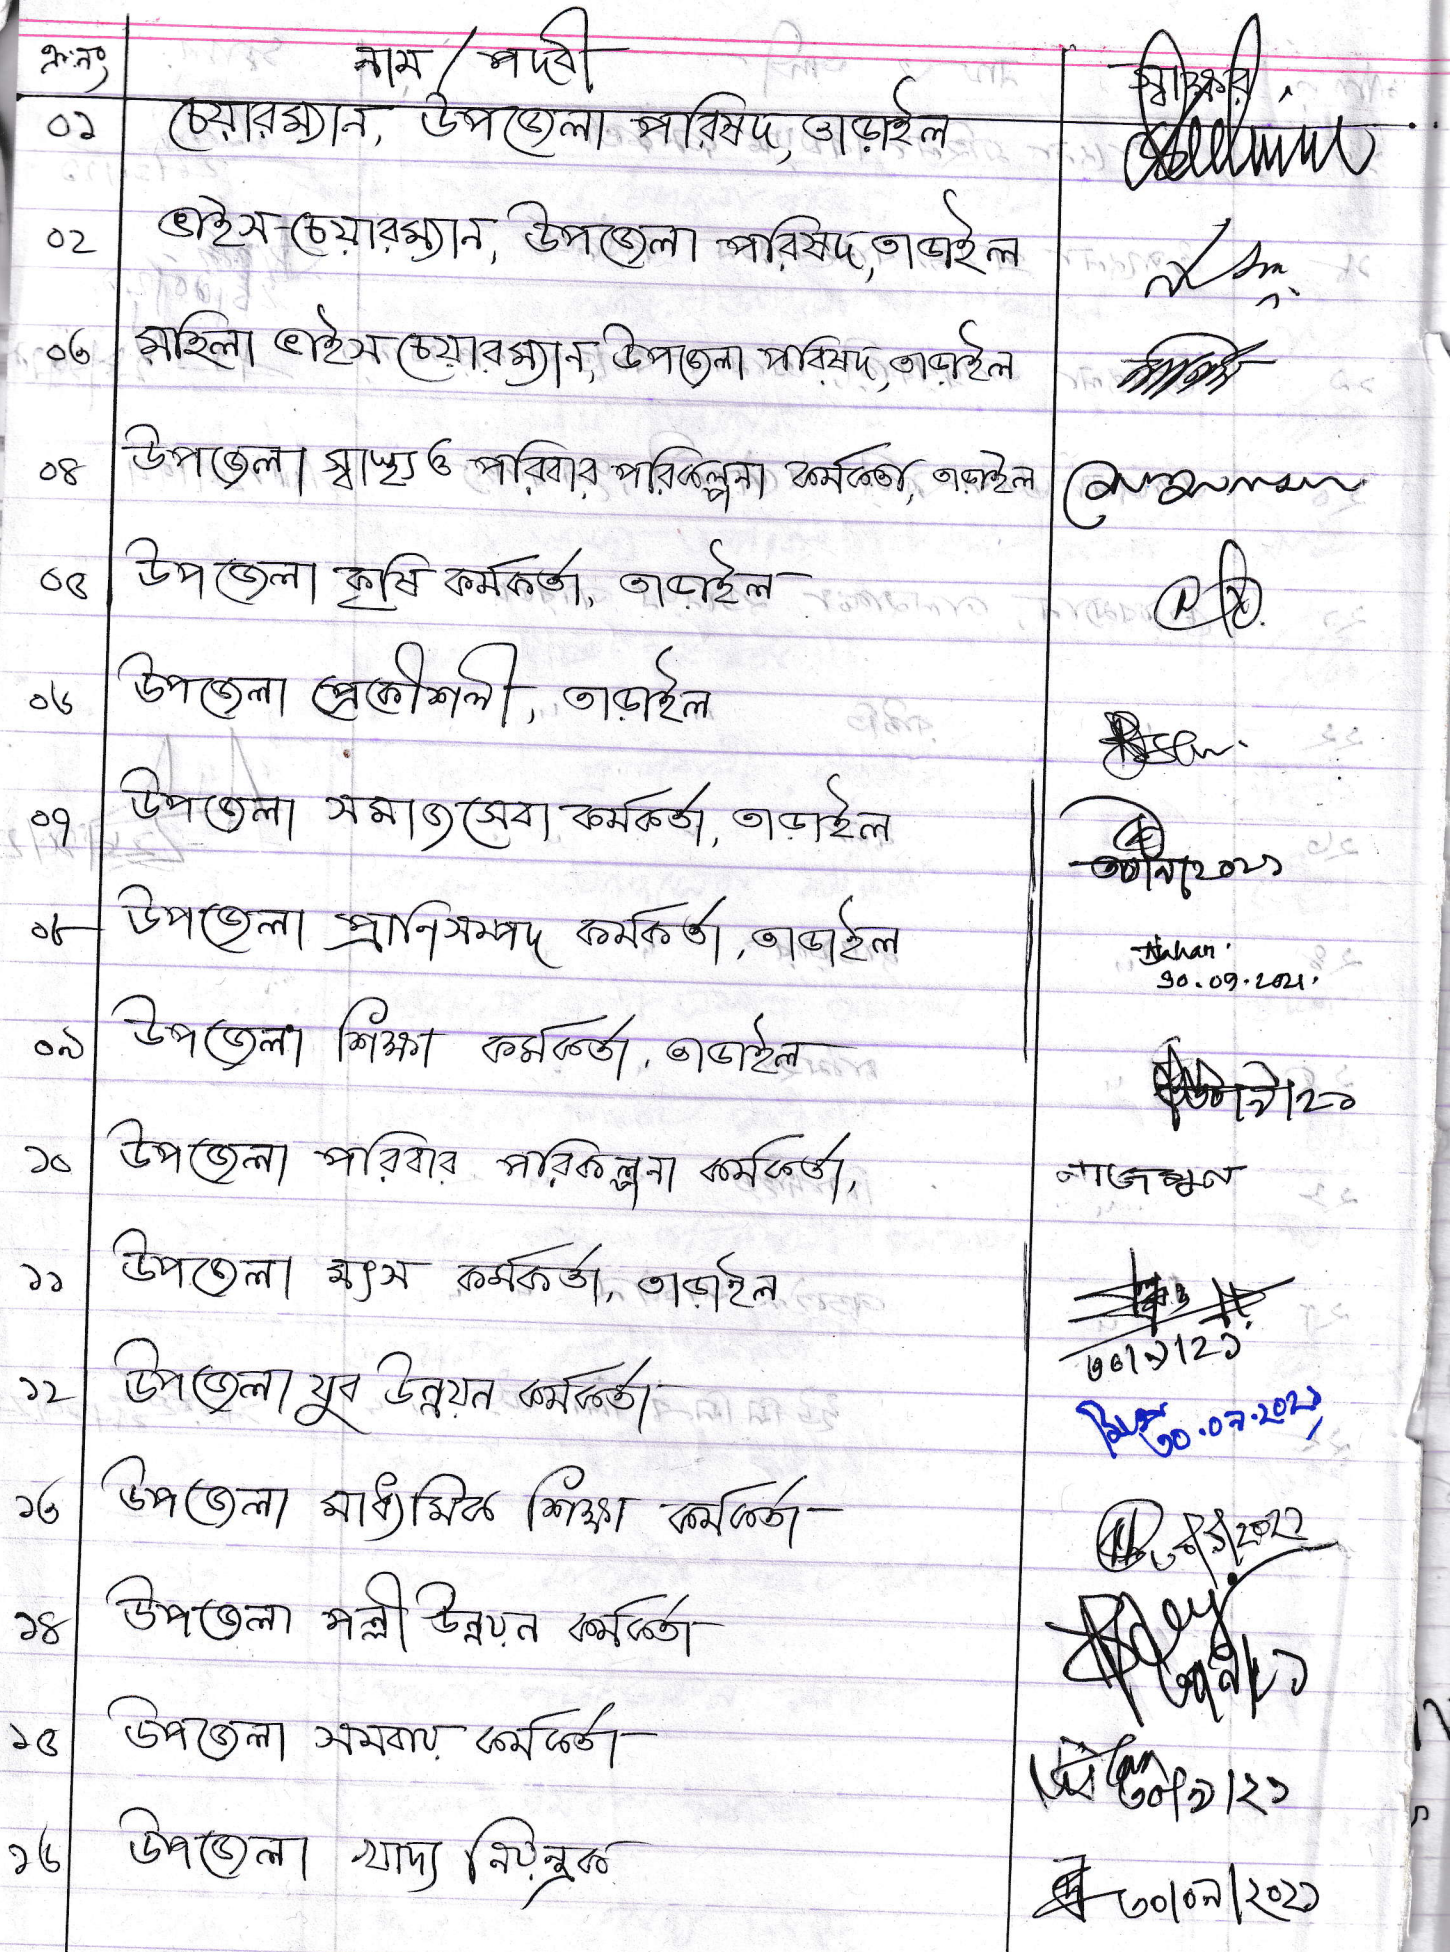 ক্র:নং নাম / পদবী স্বাক্ষর
০১ চেয়ারম্যান, উপজেলা পরিষদ, তাড়াইল
০২ ভাইস-চেয়ারম্যান, উপজেলা পরিষদ, তাড়াইল
০৩ মহিলা ভাইস চেয়ারম্যান, উপজেলা পরিষদ, তাড়াইল
০৪ উপজেলা স্বাস্থ্য ও পরিবার পরিকল্পনা কর্মকর্তা, তাড়াইল
০৫ উপজেলা কৃষি কর্মকর্তা, তাড়াইল
০৬ উপজেলা প্রকৌশলী, তাড়াইল
০৭ উপজেলা সমাজসেবা কর্মকর্তা, তাড়াইল
০৮ উপজেলা প্রাণিসম্পদ কর্মকর্তা, তাড়াইল
30.09.2021.
০৯ উপজেলা শিক্ষা কর্মকর্তা, তাড়াইল
১০ উপজেলা পরিবার পরিকল্পনা কর্মকর্তা,
১১ উপজেলা মৎস কর্মকর্তা, তাড়াইল
৩০/৯/২১
১২ উপজেলা যুব উন্নয়ন কর্মকর্তা
৩০.০৯.২০২১
১৩ উপজেলা মাধ্যমিক শিক্ষা কর্মকর্তা
১৪ উপজেলা পল্লী উন্নয়ন কর্মকর্তা
১৫ উপজেলা সমবায় কর্মকর্তা
৩০/৯/২১
১৬ উপজেলা খাদ্য নিয়ন্ত্রক
৩০/০৯/২০২১